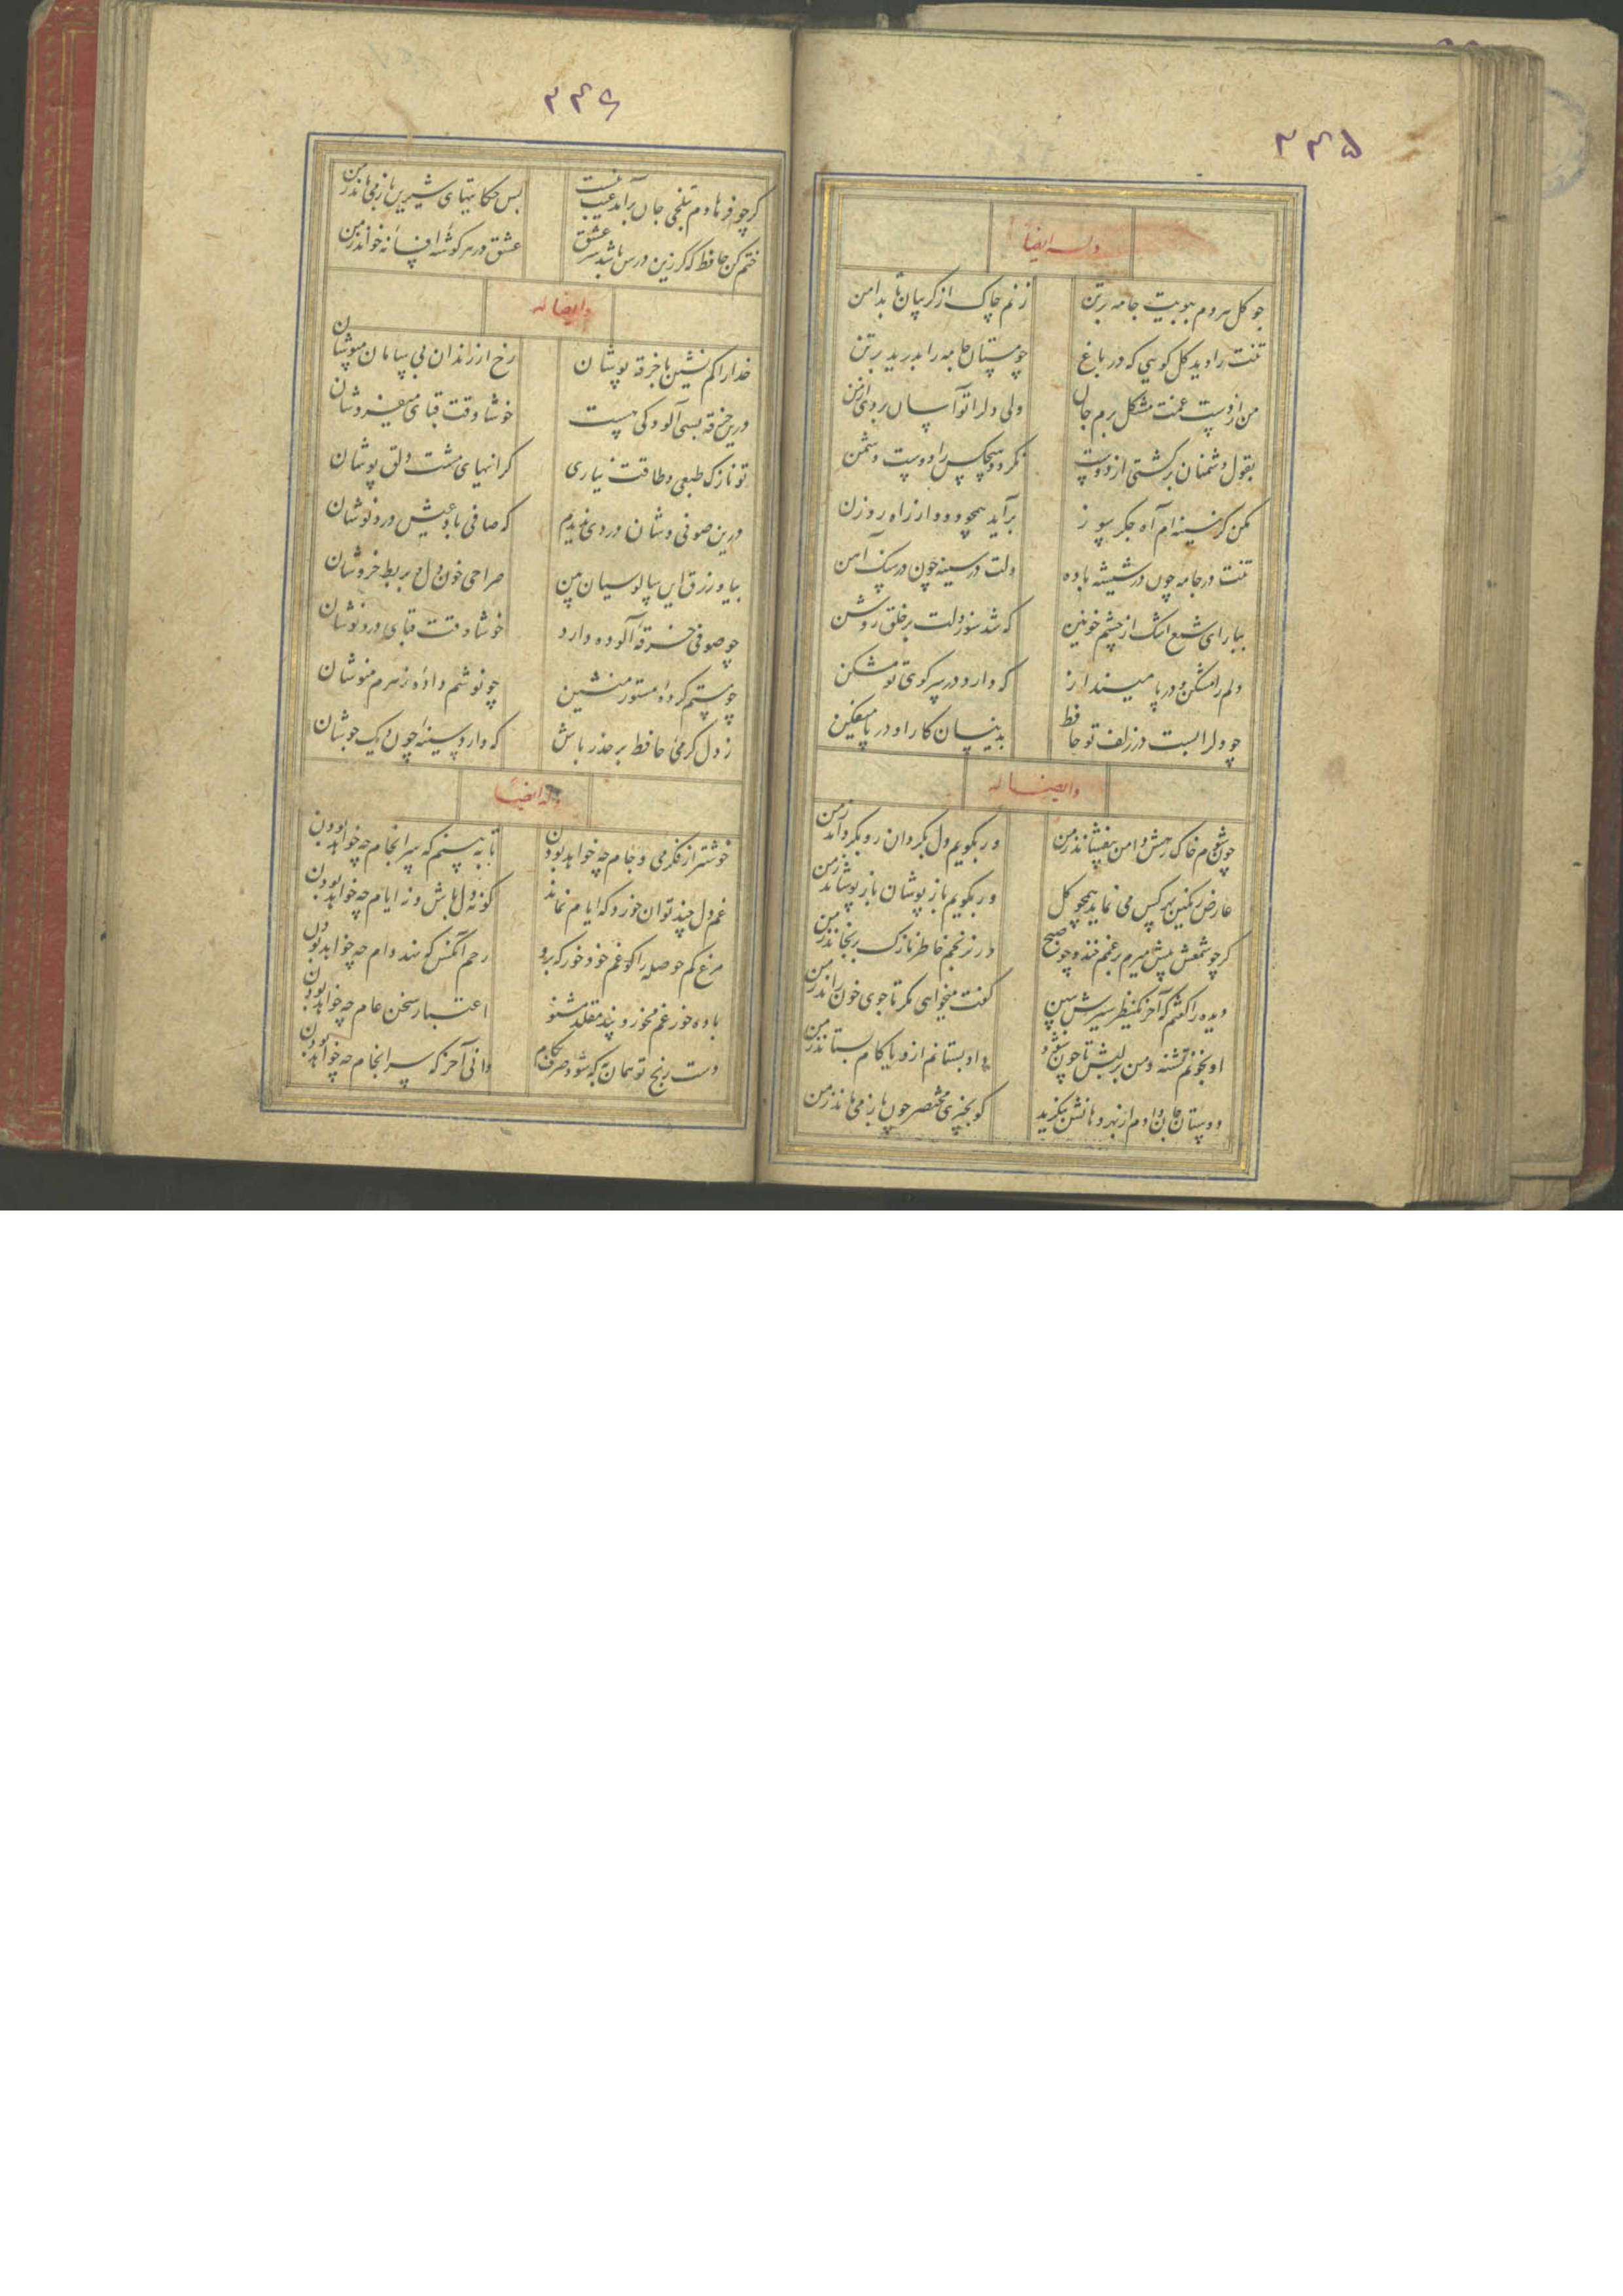 ۳۴۵
وله ایضا
چو گل هر دم ببویت جامه بر تن
زنم چاک از گریبان تا بدامن
تنت را دید گل گویی که در باغ
چو مستان جامه را بدرید بر تن
من از دست غمت مشکل برم جان
ولی دل را تو آسان بردی از من
بقول دشمنان برگشتی از دوست
نکردد هیچکس را دوست دشمن
مکن کز سینه ام آه جگر سوز
برآید همچو دود از راه روزن
تنت در جامه چون در شیشه باده
دلت در سینه چون در سنک آهن
ببار ای شمع اشک از چشم خونین
که شد سوز دلت بر خلق روشن
دلم را مشکن و در پا مینداز
که دارد در سر کوی تو مسکن
چو دل را بست در زلف تو حافظ
بدینسان کار او در پا میفکن
وایضا له
چون شوم خاک رهش دامن بیفشاند ز من
ور بگویم دل بگردان رو بگرداند ز من
عارض رنگین بهر کس می نماید همچو گل
ور بگویم باز پوشان باز پوشاند ز من
گر چو شمعش پیش میرم بر غمم خندد چو صبح
ور برنجم خاطر نازک برنجاند ز من
دیده را گفتم که آخر یکنظر سیرش ببین
گفت میخواهی مگر تا جوی خون راند ز من
او بخونم تشنه و من بر لبش تا چون شود
داد بستانم ازو یا کام بستاند ز من
دوستان جان داده ام از بهر دهانش بنگرید
کو بچیزی مختصر چون باز می ماند ز من
۳۴۶
گر چو فرهادم بتلخی جان برآید عیب نیست
بس حکایتهای شیرین باز می ماند ز من
ختم کن حافظ که گر زین درس باشد سر عشق
عشق در هر گوشه افسانه خواند ز من
وایضا له
خدا را کم نشین با خرقه پوشان
رخ از رندان بی سامان مپوشان
درین خرقه بسی آلودگی هست
خوشا وقت قبای میفروشان
تو نازک طبعی و طاقت نیاری
گرانیهای مشت دلق پوشان
درین صوفی وشان دردی ندیدم
که صافی باد عیش درد نوشان
بیا و زرق این سالوسیان بین
صراحی خون دل و بربط خروشان
چو صوفی خرقه آلوده دارد
خوشا وقت قبای درد نوشان
چو مستم کرده مستور منشین
چو نوشم داده زهرم منوشان
ز دل گرمی حافظ بر حذر باش
که دارد سینه چون دیک جوشان
وله ایضا
خوشتر از فکر می و جام چه خواهد بودن
تا ببینم که سرانجام چه خواهد بودن
غم دل چند توان خورد که ایام نماند
گو نه دل باش و نه ایام چه خواهد بودن
مرغ کم حوصله را گو غم خود خور که برو
رحم آنکس که نهد دام چه خواهد بودن
باده خور غم مخور و پند مقلد مشنو
اعتبار سخن عام چه خواهد بودن
دست رنج تو همان به که شود صرف بکام
دانی آخر که سرانجام چه خواهد بودن